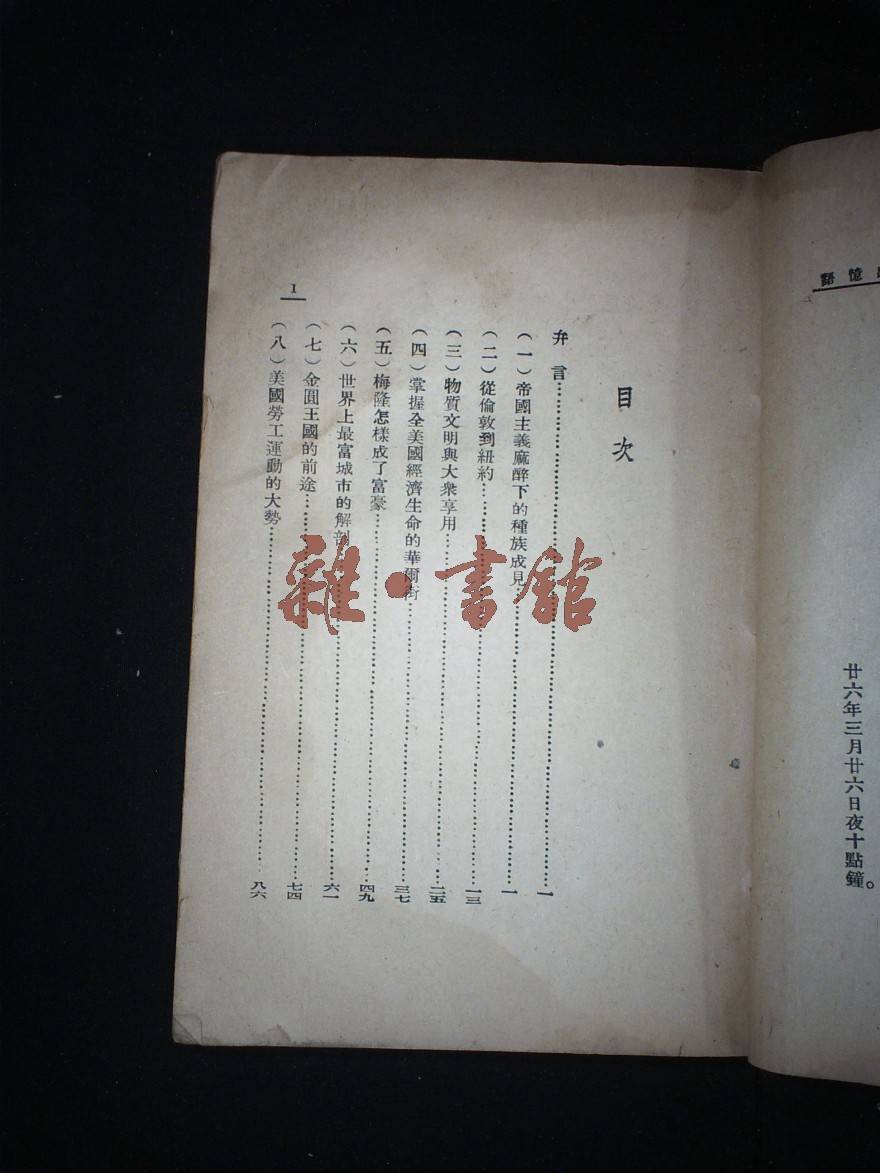 憶語
廿六年三月廿六日夜十點鐘。
目次
弁言…………一
(一)帝國主義麻醉下的種族成見…………一
(二)從倫敦到紐約…………一三
(三)物質文明與大衆享用…………二五
(四)掌握全美國經濟生命的華爾街…………三七
(五)梅隆怎樣成了富豪…………四九
(六)世界上最富城市的解剖…………六一
(七)金圓王國的前途…………七四
(八)美國勞工運動的大勢…………八六
1
雜·書館